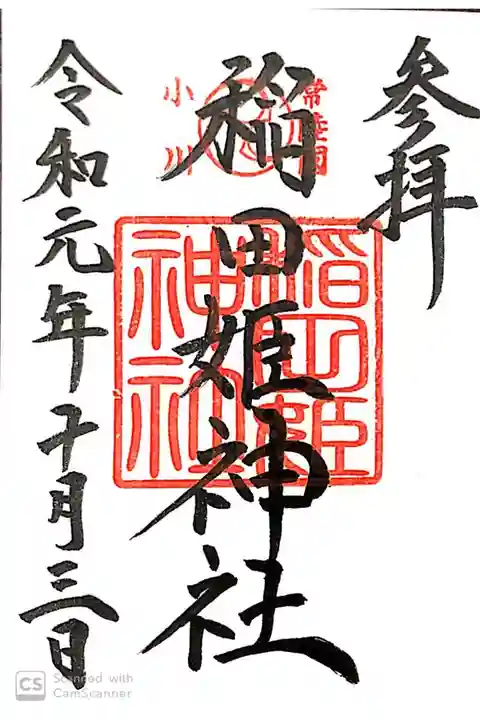 参拝
常陸國
小川
稲田姫神社
稲田姫神社
令和元年十月三日
CS Scanned with
CamScanner